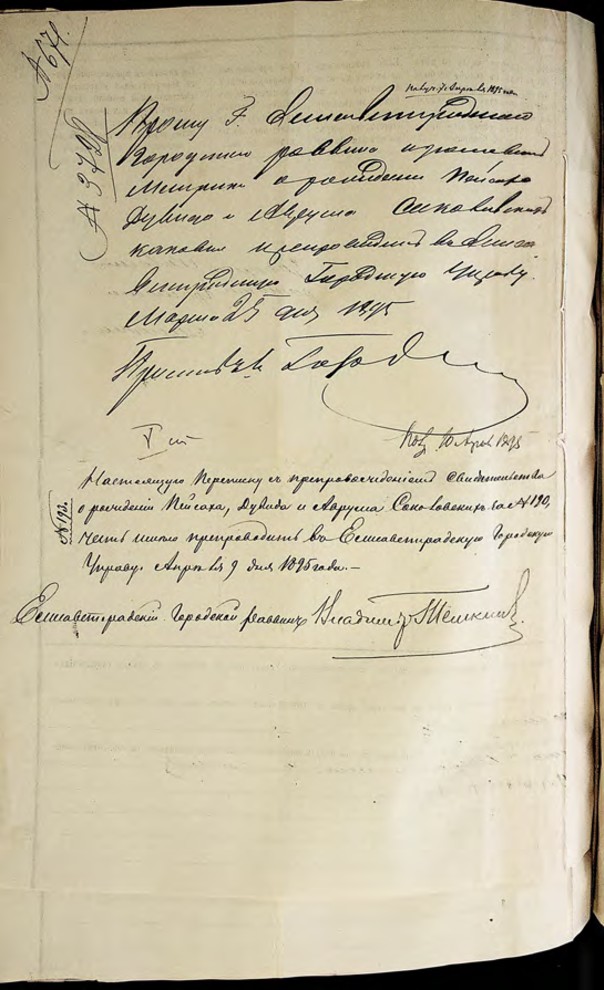 № 671.
№ 3728
Прошу Г. Елисаветградскаго
Городского раввина
Метрики о рождении Пейсаха
Дувида и Аврума Соколовских
каковыя препроводить в Елиса
ветградскую Городскую Управу.
Марта 25 дня 1895
V ст
Пол. 10 Апр. 1895
№ 193.
Настоящую переписку съ препровожденіемъ свидѣтельства
о рожденіи Пейсаха, Дувида и Аврума Соколовскихъ за № 190,
честь имѣю препроводить въ Елисаветградскую Городскую
Управу. Апрѣля 9 дня 1895 года.—
Елисаветградскій Городской раввинъ Владиміръ Тёмкинъ.